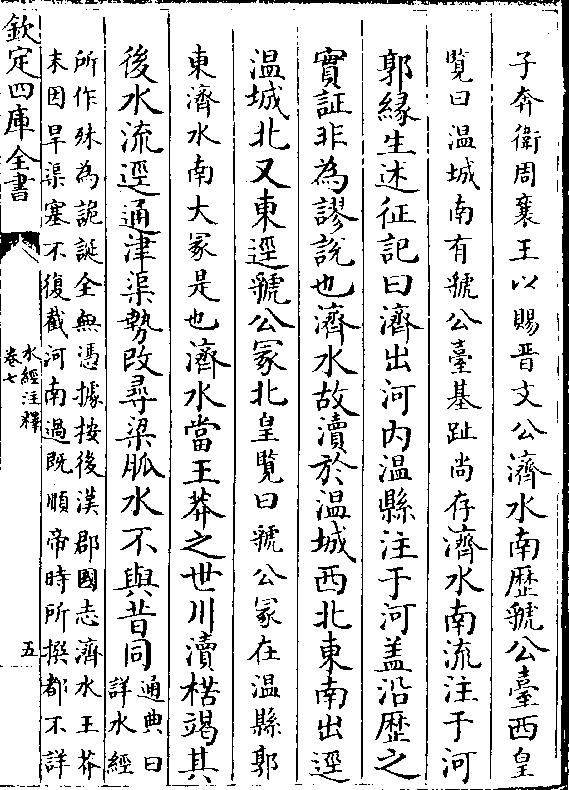 子奔衛周襄王以賜晉文公濟水南歴虢公臺西皇
覧曰温城南有虢公臺基趾尚存濟水南流注于河
郭縁生述征記曰濟出河内温縣注于河盖沿歴之
實証非為謬説也濟水故瀆於温城西北東南出逕
温城北又東逕虢公冢北皇覧曰虢公冢在温縣郭
東濟水南大冢是也濟水當王莽之世川瀆枯竭其
後水流逕通津渠勢改尋梁脈水不與昔同
通典曰
詳水經
所作殊為詭誕全無憑據按後漢郡國志濟水王莽
末因旱渠塞不復截河南過既順帝時所撰都不詳
欽定四庫全書
水經注釋
卷七
五